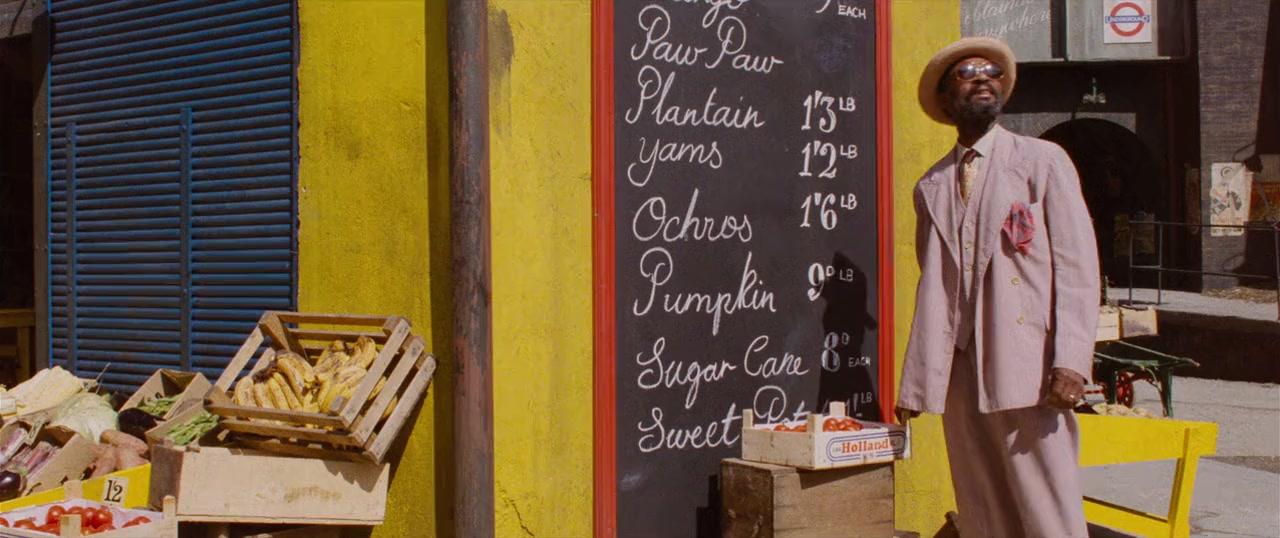 EACH
Paw Paw
Plantain 1'3 LB
yams 1'2 LB
Ochros 1'6 LB
Pumpkin 9D LB
Sugar Cane 8D EACH
Sweet LB
Holland
12
UNDERGROUND